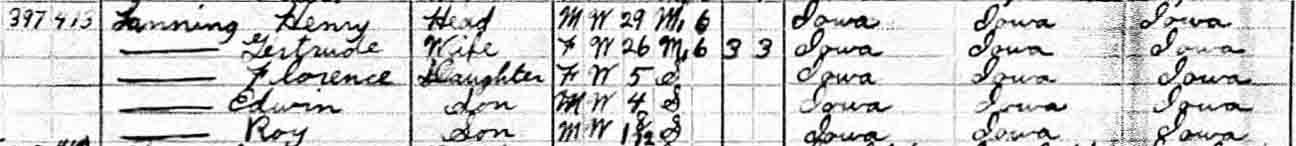 397 413 Lanning Henry Head M W 29 M1 6 Iowa Iowa Iowa
—— Gertrude Wife F W 26 M1 6 3 3 Iowa Iowa Iowa
—— Florence Daughter F W 5 S Iowa Iowa Iowa
—— Edwin Son M W 4 S Iowa Iowa Iowa
—— Roy Son M W 1 8/12 S Iowa Iowa Iowa